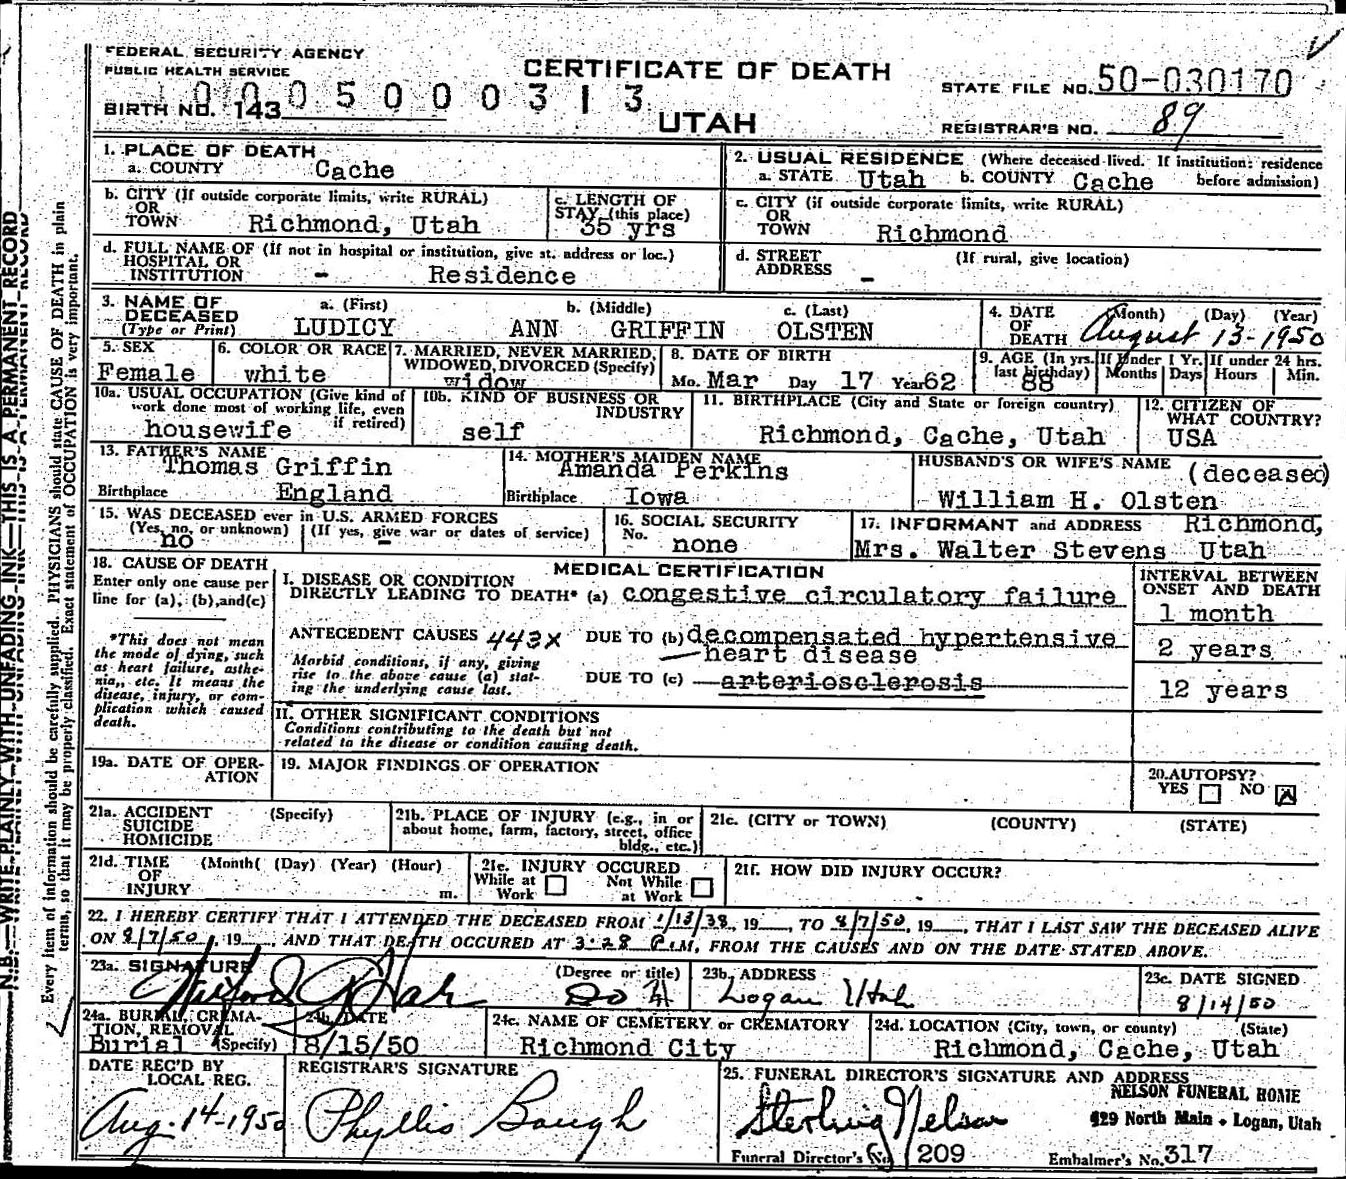 FEDERAL SECURITY AGENCY
PUBLIC HEALTH SERVICE
CERTIFICATE OF DEATH
STATE FILE NO. 50-030170
10005000313
BIRTH NO. 143
UTAH
REGISTRAR'S NO. 89
1. PLACE OF DEATH
a. COUNTY Cache
2. USUAL RESIDENCE (Where deceased lived. If institution: residence before admission)
a. STATE Utah b. COUNTY Cache
b. CITY (If outside corporate limits, write RURAL)
OR TOWN Richmond, Utah
c. LENGTH OF STAY (this place)
35 yrs
c. CITY (if outside corporate limits, write RURAL)
OR TOWN Richmond
d. FULL NAME OF (If not in hospital or institution, give st. address or loc.)
HOSPITAL OR INSTITUTION - Residence
d. STREET ADDRESS - (If rural, give location)
3. NAME OF DECEASED (Type or Print)
a. (First) b. (Middle) c. (Last)
LUDICY ANN GRIFFIN OLSTEN
4. DATE OF DEATH (Month) (Day) (Year)
August 13-1950
5. SEX
Female
6. COLOR OR RACE
white
7. MARRIED, NEVER MARRIED, WIDOWED, DIVORCED (Specify)
widow
8. DATE OF BIRTH
Mo. Mar Day 17 Year 62
9. AGE (In yrs. last birthday)
88
If Under 1 Yr. Months Days
If under 24 hrs. Hours Min.
10a. USUAL OCCUPATION (Give kind of work done most of working life, even if retired)
housewife
10b. KIND OF BUSINESS OR INDUSTRY
self
11. BIRTHPLACE (City and State or foreign country)
Richmond, Cache, Utah
12. CITIZEN OF WHAT COUNTRY?
USA
13. FATHER'S NAME
Thomas Griffin
Birthplace England
14. MOTHER'S MAIDEN NAME
Amanda Perkins
Birthplace Iowa
HUSBAND'S OR WIFE'S NAME (deceased)
William H. Olsten
15. WAS DECEASED ever in U.S. ARMED FORCES
(Yes, no, or unknown) (If yes, give war or dates of service)
no -
16. SOCIAL SECURITY No.
none
17. INFORMANT and ADDRESS Richmond,
Mrs. Walter Stevens Utah
18. CAUSE OF DEATH
Enter only one cause per line for (a), (b), and (c)
*This does not mean the mode of dying, such as heart failure, asthenia, etc. It means the disease, injury, or complication which caused death.
MEDICAL CERTIFICATION
I. DISEASE OR CONDITION DIRECTLY LEADING TO DEATH* (a) congestive circulatory failure
ANTECEDENT CAUSES 443X DUE TO (b) decompensated hypertensive heart disease
Morbid conditions, if any, giving rise to the above cause (a) stating the underlying cause last.
DUE TO (c) arteriosclerosis
INTERVAL BETWEEN ONSET AND DEATH
1 month
2 years
12 years
II. OTHER SIGNIFICANT CONDITIONS
Conditions contributing to the death but not related to the disease or condition causing death.
19a. DATE OF OPERATION
19. MAJOR FINDINGS OF OPERATION
20. AUTOPSY?
YES NO X
21a. ACCIDENT SUICIDE HOMICIDE (Specify)
21b. PLACE OF INJURY (e.g., in or about home, farm, factory, street, office bldg., etc.)
21c. (CITY OR TOWN) (COUNTY) (STATE)
21d. TIME OF INJURY (Month( (Day) (Year) (Hour) m.
21e. INJURY OCCURED
While at Work Not While at Work
21f. HOW DID INJURY OCCUR?
22. I HEREBY CERTIFY THAT I ATTENDED THE DECEASED FROM 1/13/38, 19__, TO 8/7/50, 19__, THAT I LAST SAW THE DECEASED ALIVE
ON 8/7/50, 19__, AND THAT DEATH OCCURED AT 3:28 P.M, FROM THE CAUSES AND ON THE DATE STATED ABOVE.
23a. SIGNATURE (Degree or title)
23b. ADDRESS
Logan Utah
23c. DATE SIGNED
8/14/50
24a. BURIAL, CREMATION, REMOVAL (Specify)
Burial
24b. DATE
8/15/50
24c. NAME OF CEMETERY or CREMATORY
Richmond City
24d. LOCATION (City, town, or county) (State)
Richmond, Cache, Utah
DATE REC'D BY LOCAL REG.
Aug. 14-1950
REGISTRAR'S SIGNATURE
Phyllis Baugh
25. FUNERAL DIRECTOR'S SIGNATURE AND ADDRESS
NELSON FUNERAL HOME
429 North Main - Logan, Utah
Sterling Nelson
Funeral Director's No. 209 Embalmer's No. 317
N.B.—WRITE PLAINLY WITH UNFADING INK—THIS IS A PERMANENT RECORD
Every item of information should be carefully supplied. PHYSICIANS should state CAUSE OF DEATH in plain
terms, so that it may be properly classified. Exact statement of OCCUPATION is very important.